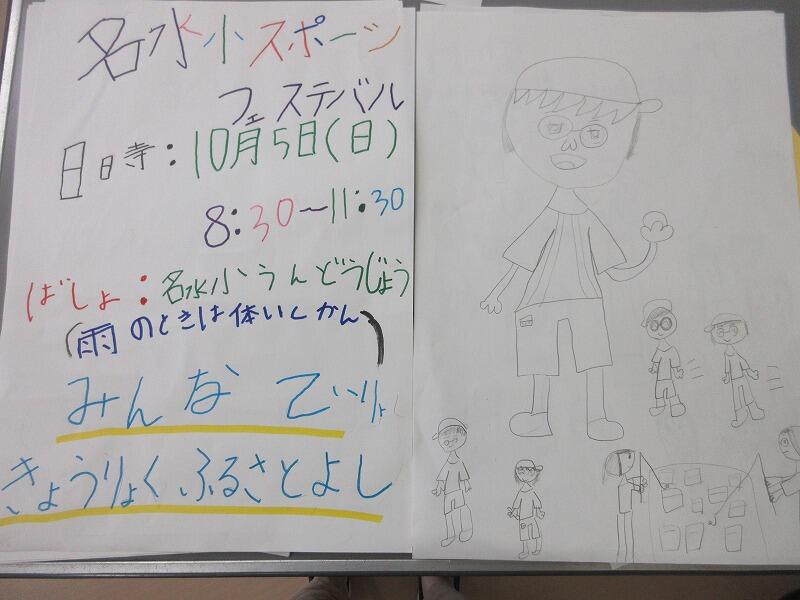 名水小スポーツ
フェスティバル
日時:10月5日(日)
8:30~11:30
ばしょ:名水小うんどうじょう
(雨のときは体いくかん)
みんな
きょうりょくふるさとよし